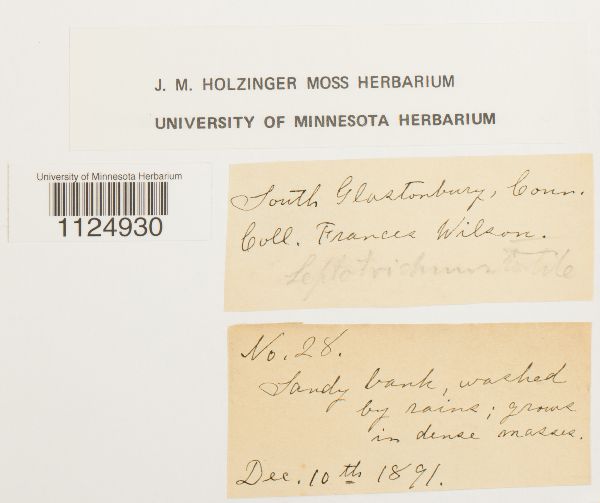 J. M. HOLZINGER MOSS HERBARIUM
UNIVERSITY OF MINNESOTA HERBARIUM
University of Minnesota Herbarium
1124930
South Glastonbury, Conn.
Coll. Frances Wilson.
Leptotrichum
No. 28.
Sandy bank, washed
by rains; grows
in dense masses.
Dec. 10th 1891.